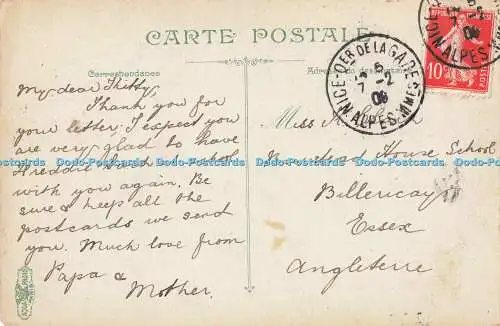 CARTE POSTALE
Correspondance
Adresse du destinataire
My dear Kitty,
Thank you for
your letter. I expect you
are very glad to have
Freddie back at school
with you again. Be
sure & keep all the
postcards we send
you. Much love from
Papa &
Mother.
Miss
House School
Billericay
Essex
Angleterre
NICE-QER DE LA GARE
7 -2
06
ALPES MMES
10
POSTES
Dodo-Postcards Dodo-Postcards Dodo-Postcards Dodo-Postcards Dodo-Postcards Dodo-Postcards
AQUA PHOTO